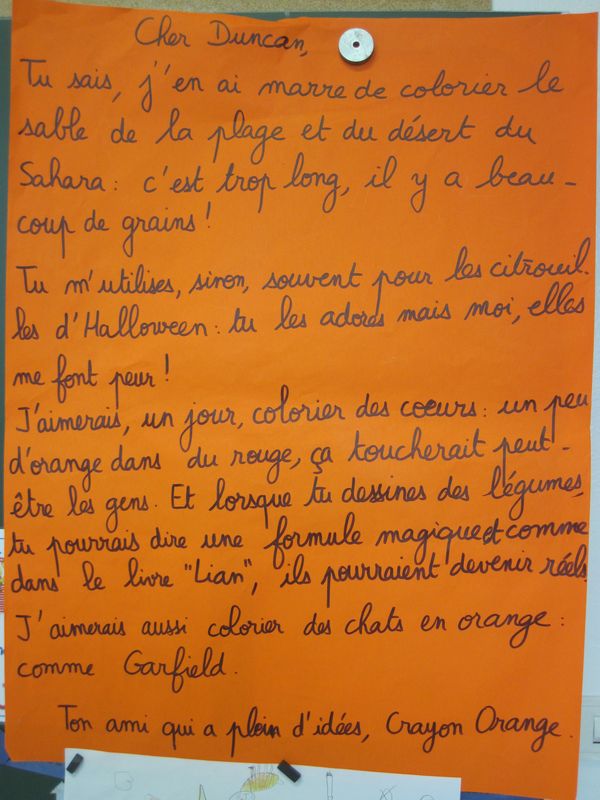 Cher Duncan,
Tu sais, j'en ai marre de colorier le
sable de la plage et du désert du
Sahara : c'est trop long, il y a beau-
coup de grains !
Tu m'utilises, sinon, souvent pour les citrouil-
les d'Halloween : tu les adores mais moi, elles
me font peur !
J'aimerais, un jour, colorier des coeurs : un peu
d'orange dans du rouge, ça toucherait peut-
être les gens. Et lorsque tu dessines des légumes,
tu pourrais dire une formule magique et comme
dans le livre "Lian", ils pourraient devenir réels.
J'aimerais aussi colorier des chats en orange :
comme Garfield.
Ton ami qui a plein d'idées, Crayon Orange.